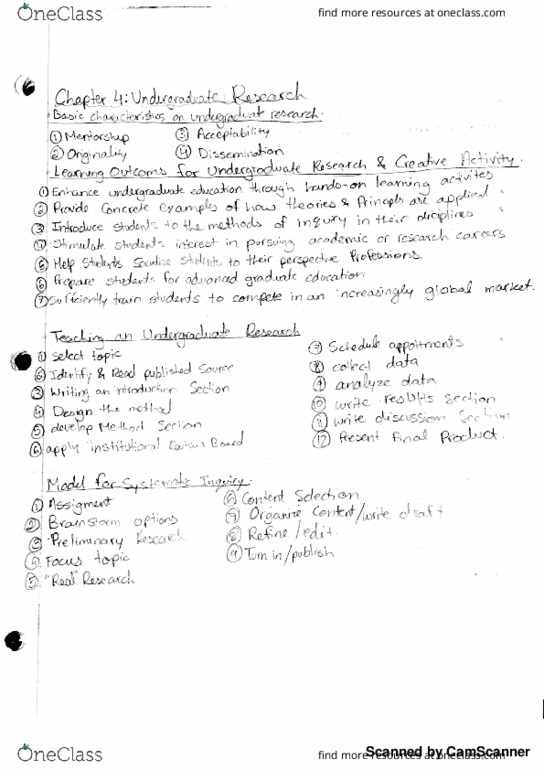 OneClass
find more resources at oneclass.com
Chapter 4: Undergraduate Research
Basic characteristics on undergraduate research.
① Mentorship
③ Acceptability
② Originality
④ Dissemination
Learning Outcoms for Undergraduate Research & Creative Activity.
① Enhance undergraduate education through hands-on learning activites
② Provide Concrete examples of how theories & Principls are applied
③ Introduce students to the methods of inquiry in their diciplines
④ Stimulate students interest in pursuing academic or research careers
⑤ Help Students Students to their perspective Professions.
⑥ Prepare students for advanced graduate education
⑦ Sufficiently train students to compete in an increasingly global market.
Teaching an Undergraduate Research
① Select topic
② Identify & Read published Source
③ Writing an introduction Section
④ Design the method
⑤ develop Method Section
⑥ apply institutional Board
⑦ Schedule appoitments
⑧ collect data
⑨ analyze data
⑩ write results section
⑪ write discussion section
⑫ Present Final Product.
Model for Systematic Inquiry.
① Assigment
② Brainstorm options
③ Preliminary Research
④ Focus topic
⑤ "Real" Research
⑥ Content Selection
⑦ Organize Content/write draft
⑧ Refine/edit.
⑨ Turn in/publish
OneClass
find more resources at oneclass.com
Scanned by CamScanner